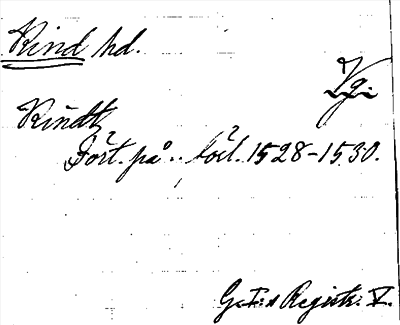 Kind hd.
Vg.
Kindh
Fört. på .. förl. 1528-1530.
G. I:s Registr. V.